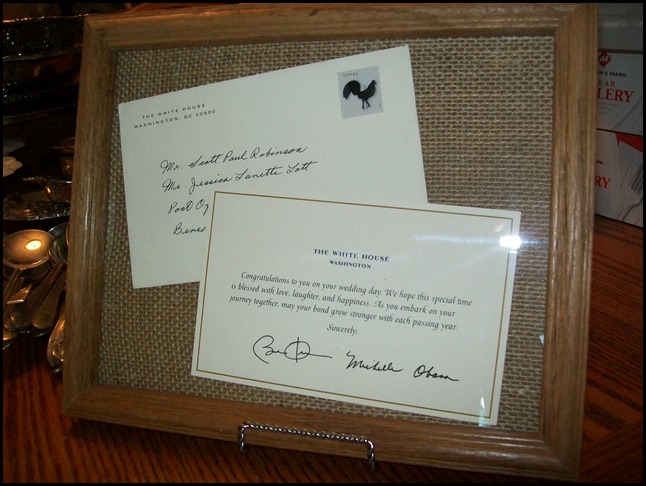 THE WHITE HOUSE
WASHINGTON, DC 20500
Mr. Scott Paul Robinson
Ms. Jessica Lanette Lott
Post
THE WHITE HOUSE
WASHINGTON
Congratulations to you on your wedding day. We hope this special time
is blessed with love, laughter, and happiness. As you embark on your
journey together, may your bond grow stronger with each passing year.
Sincerely,
Michelle Obama
LERY
RY